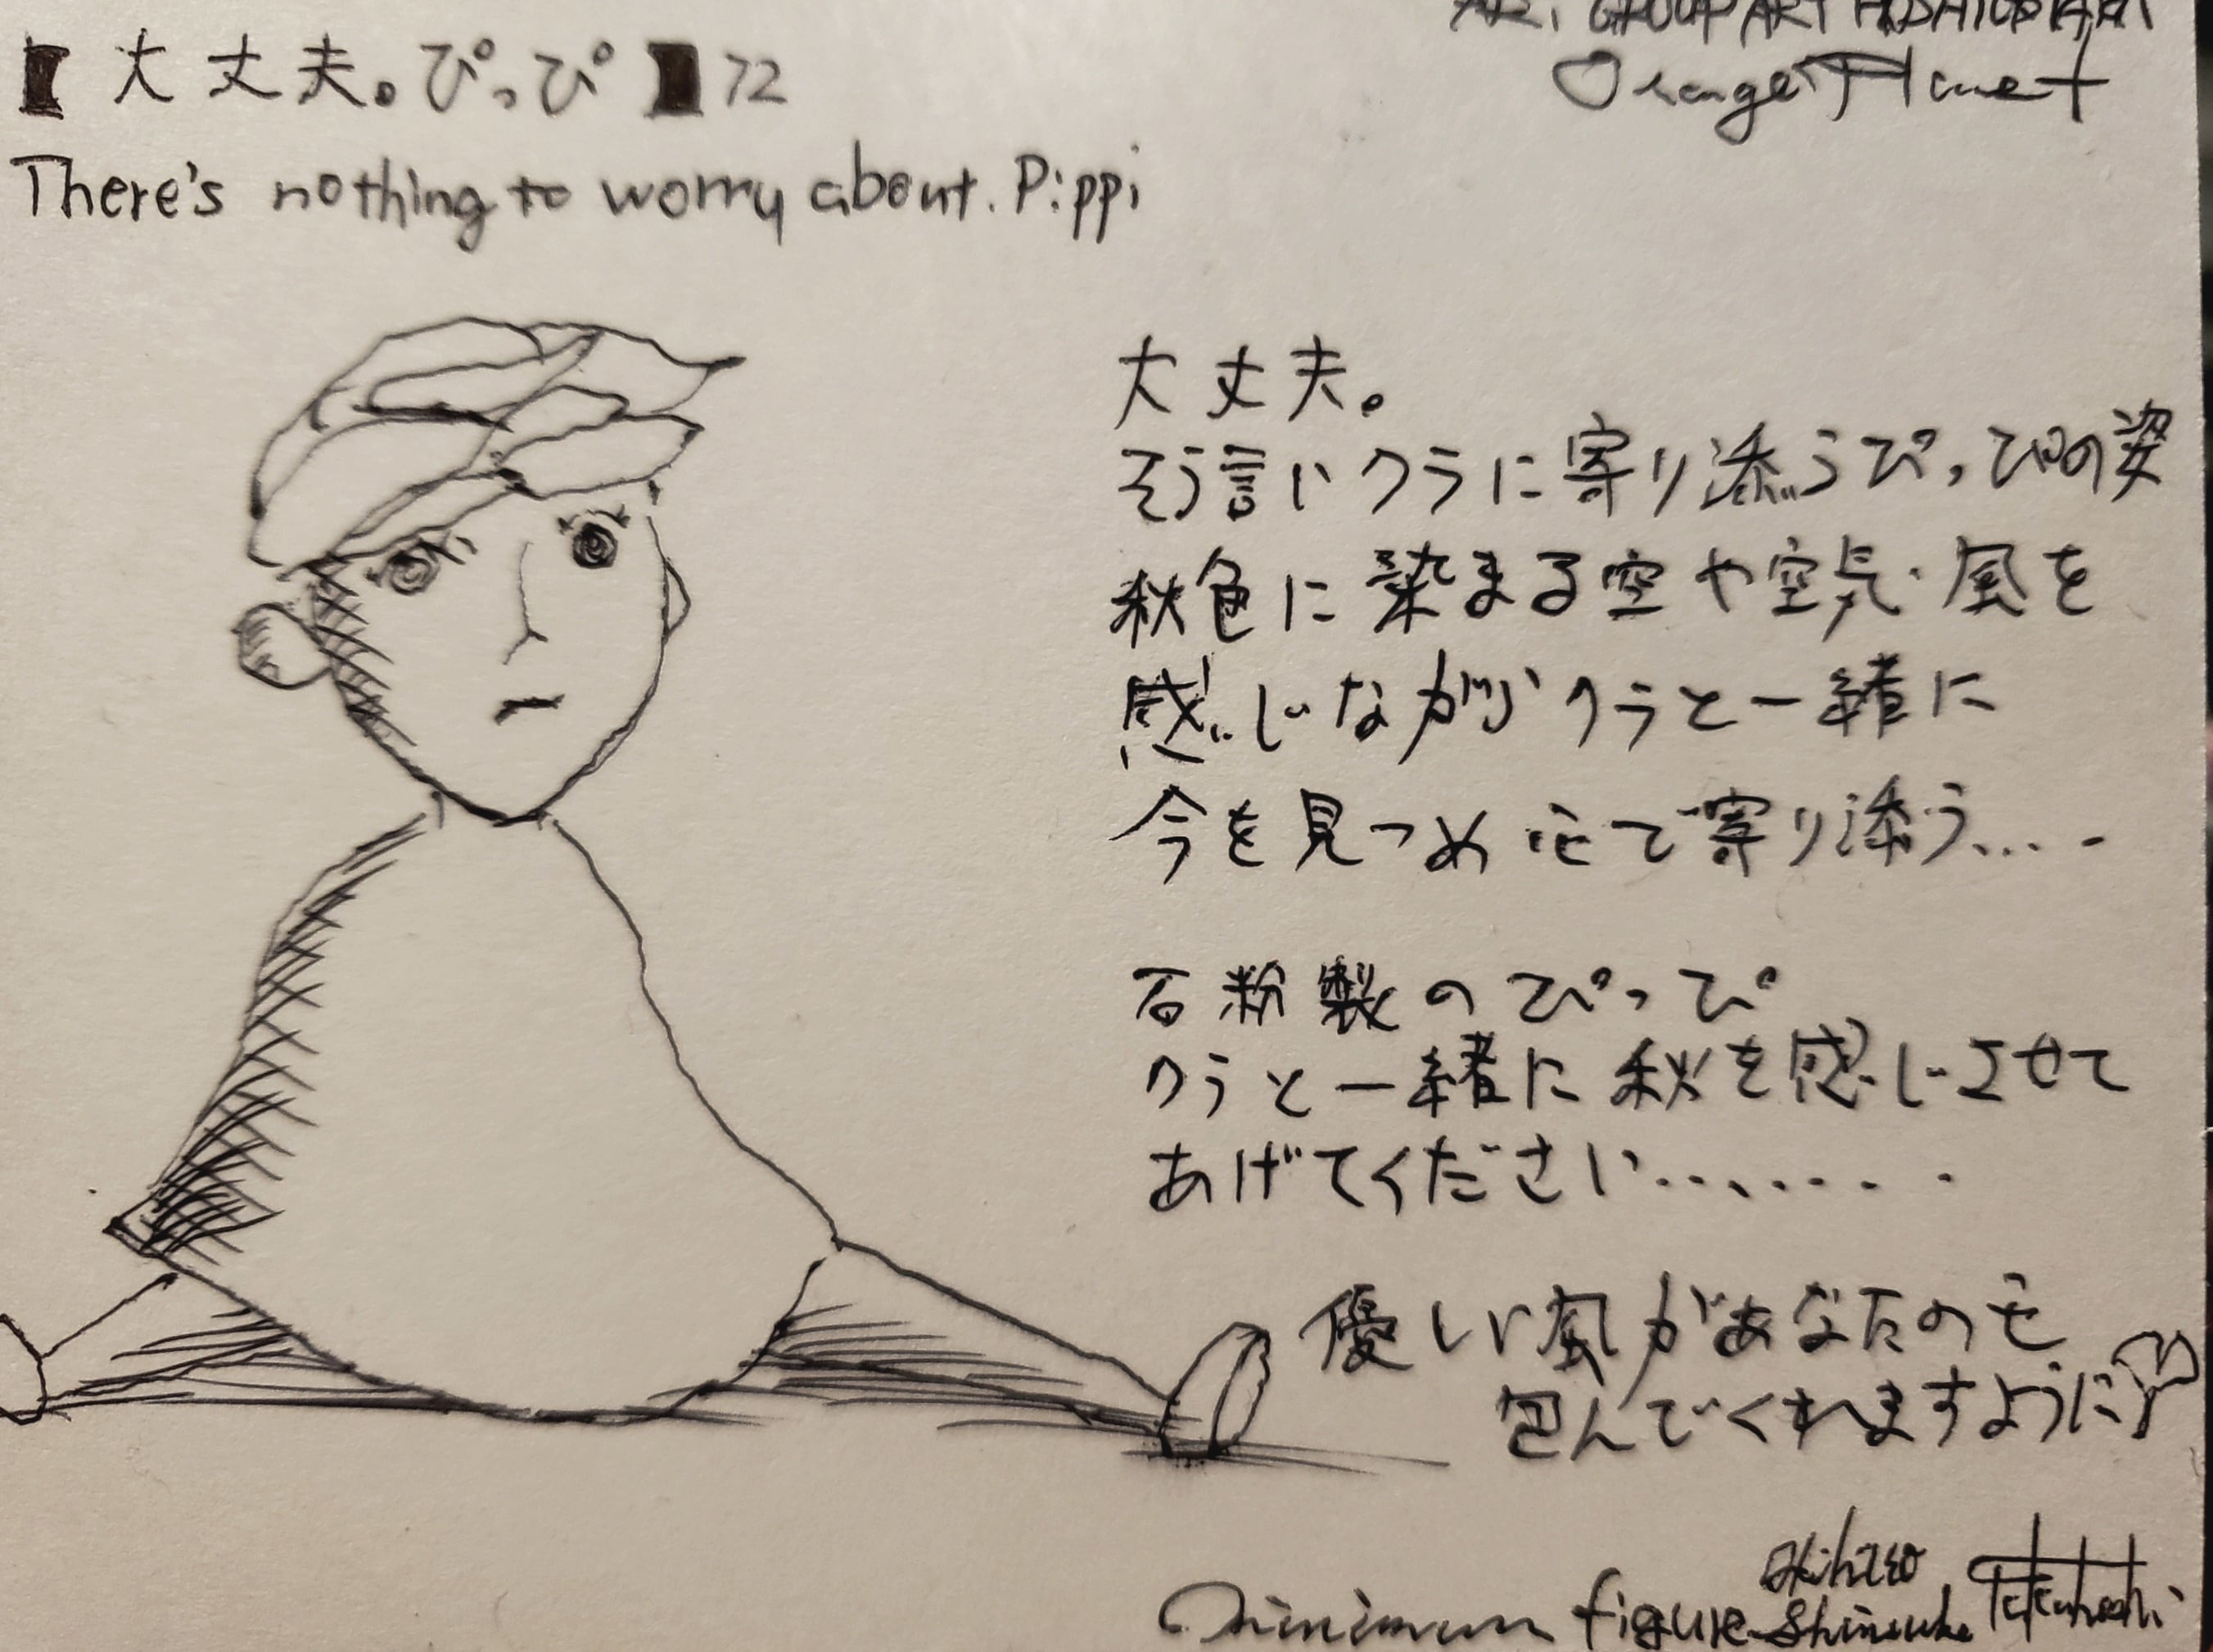 【大丈夫。ぴっぴ】72
There's nothing to worry about. Pippi
Orange Planet
大丈夫。
そう言いクラに寄り添うぴっぴの姿
秋色に染まる空や空気・風を
感じながらクラと一緒に
今を見つめ 心で寄り添う....
石粉製のぴっぴ
クラと一緒に秋を感じさせて
あげてください.........
優しい風があなたの心
包んでくれますように
minimum figure
Akihiro
Shinsuke